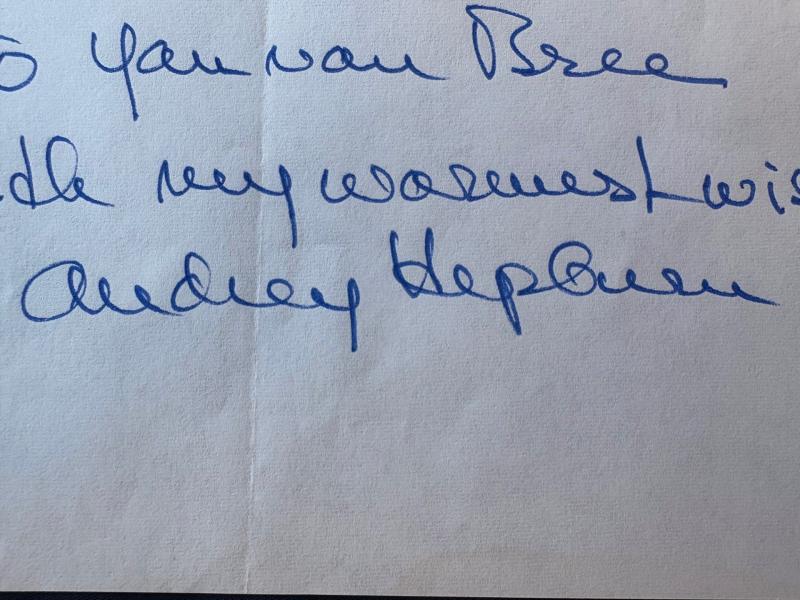 o Yan van Bree
ith my warmest wis
Audrey Hepburn